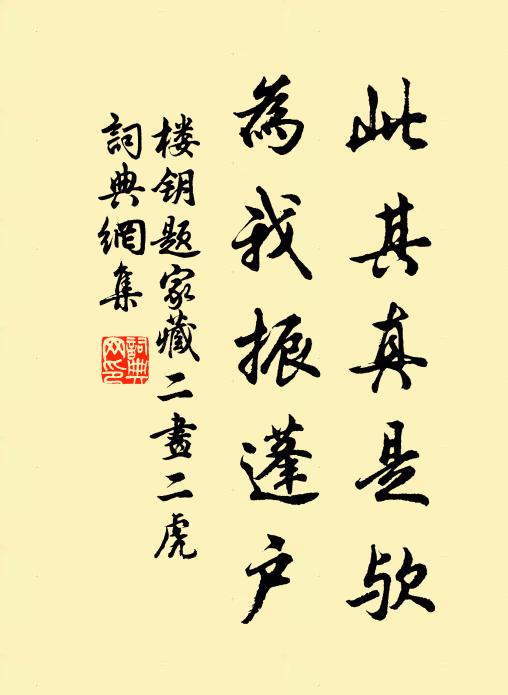 此其真是欤
為我振蓬户
楼钥题家藏二畫二虎
詞典網集
詞典网印